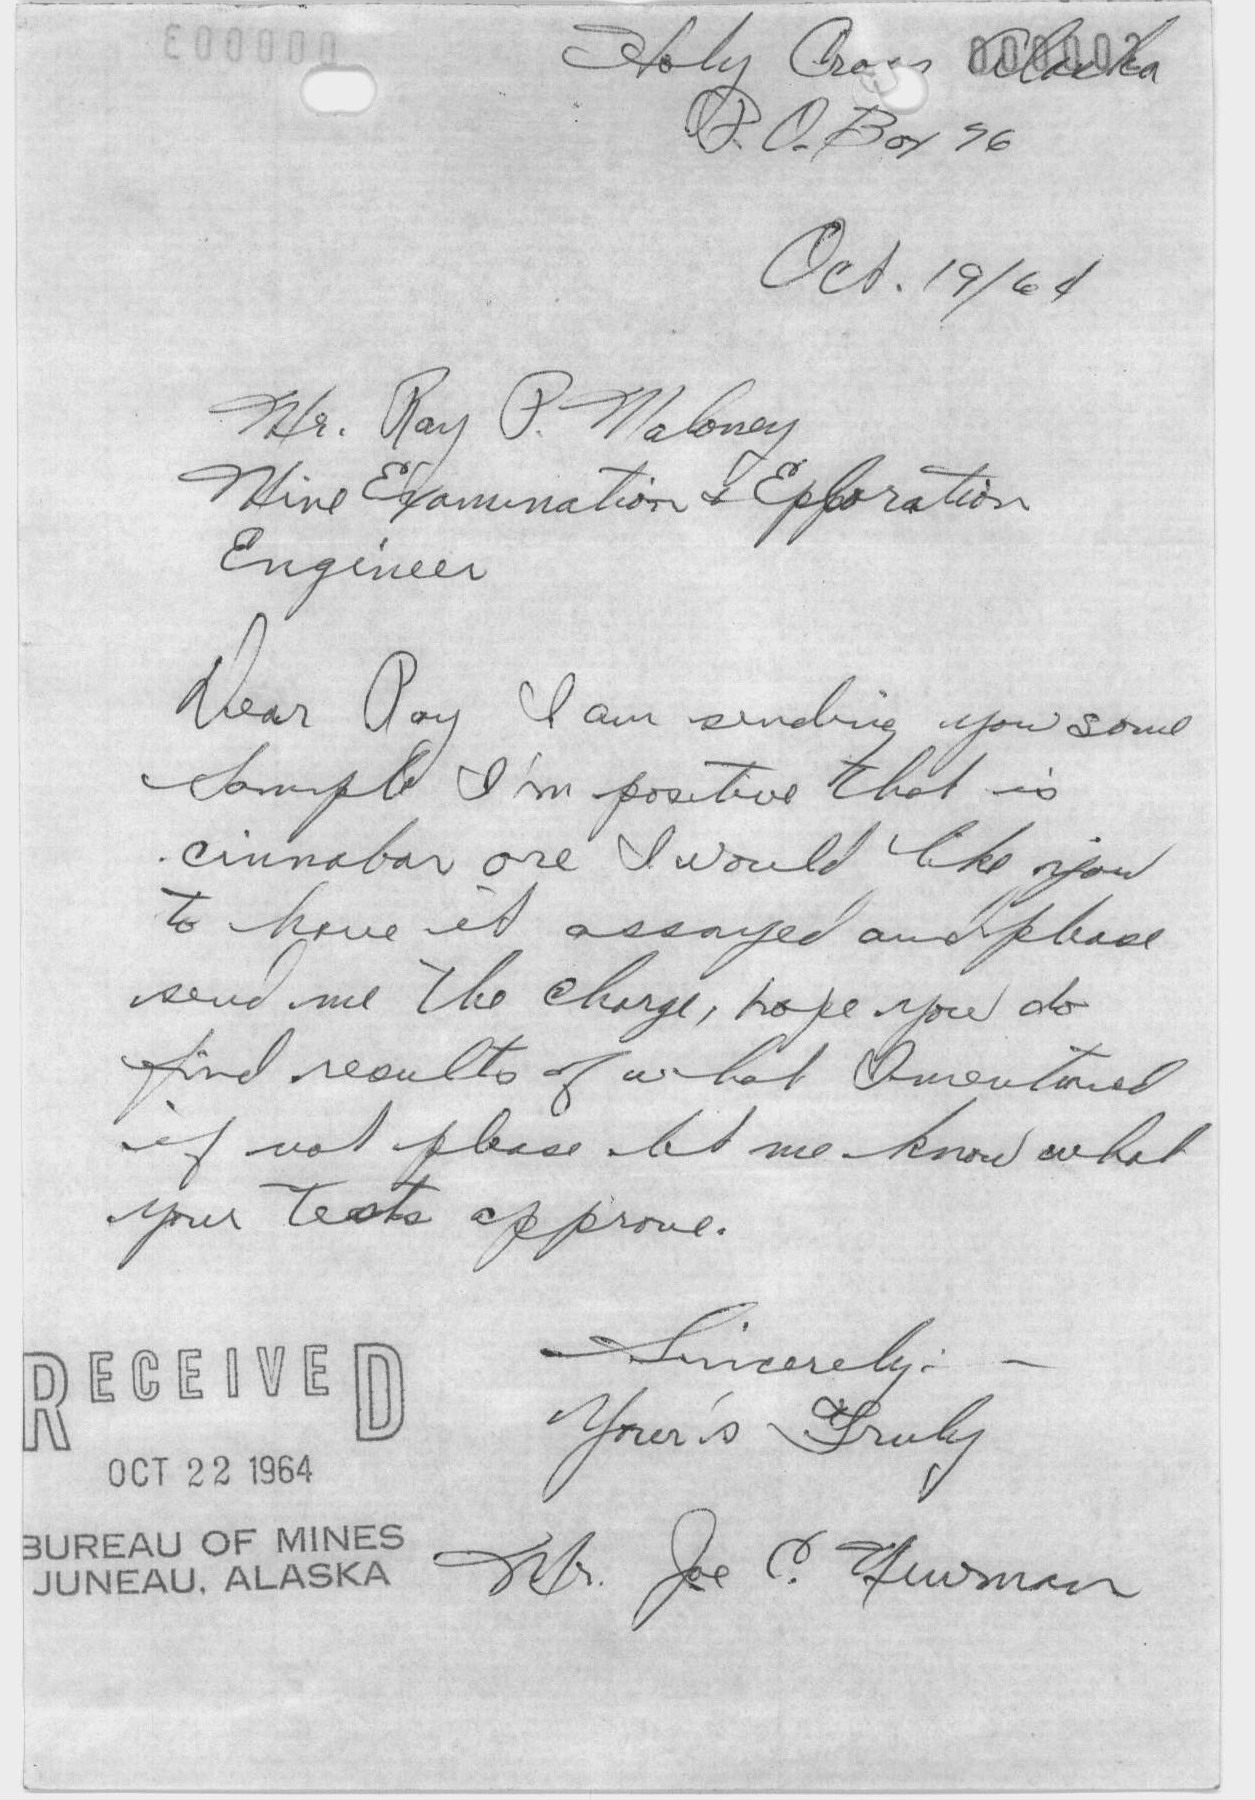 000003
000002
Holy Cross Alaska
P.O. Box 76
Oct. 19/64
Mr. Ray P. Maloney
Mine Examination & Exploration
Engineer
Dear Ray I am sending you some
sample I'm positive that is
cinnabar ore I would like you
to have it assayed and please
send me the charge, hope you do
find results of what I mentioned
if not please let me know what
your tests approve.
Sincerely: -
Your's Truly
Mr. Joe C. Newman
RECEIVED
OCT 22 1964
BUREAU OF MINES
JUNEAU, ALASKA